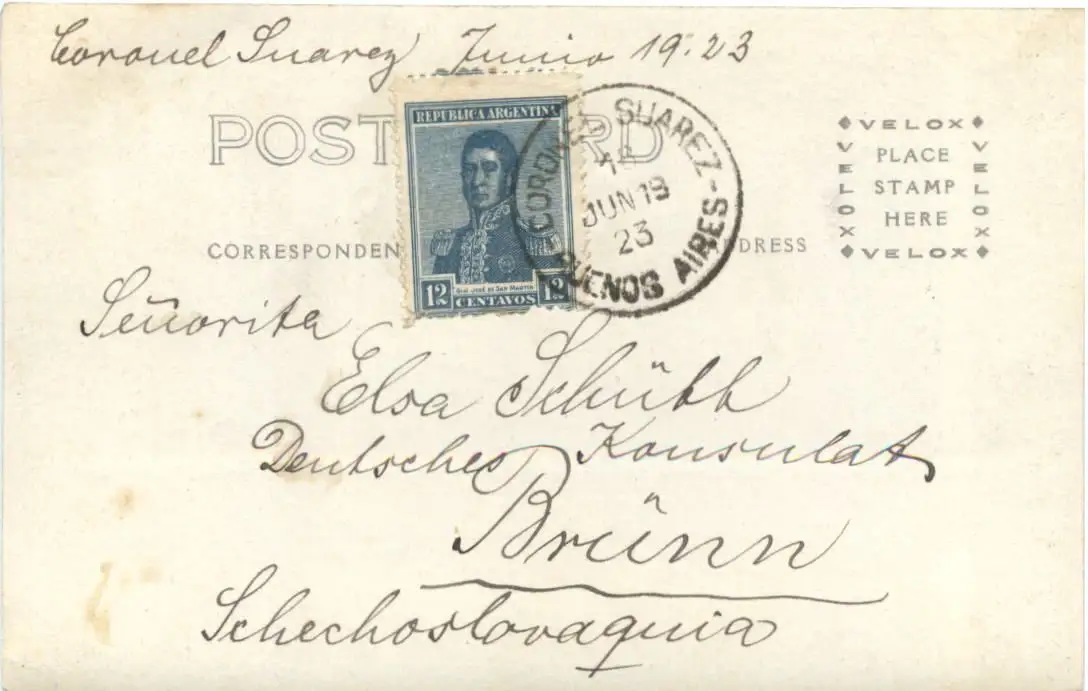 Coronel Suarez Junio 19. 23
POST CARD
REPUBLICA ARGENTINA
GRAL JOSÉ DE SAN MARTIN
12 CENTAVOS 12
CORONEL SUAREZ - BUENOS AIRES -
JUN 19
23
VELOX
VELOX
VELOX
VELOX
PLACE
STAMP
HERE
CORRESPONDEN
DRESS
Señorita
Elsa Schütt
Deutsches Konsulat
Brünn
Schechoslovaquia